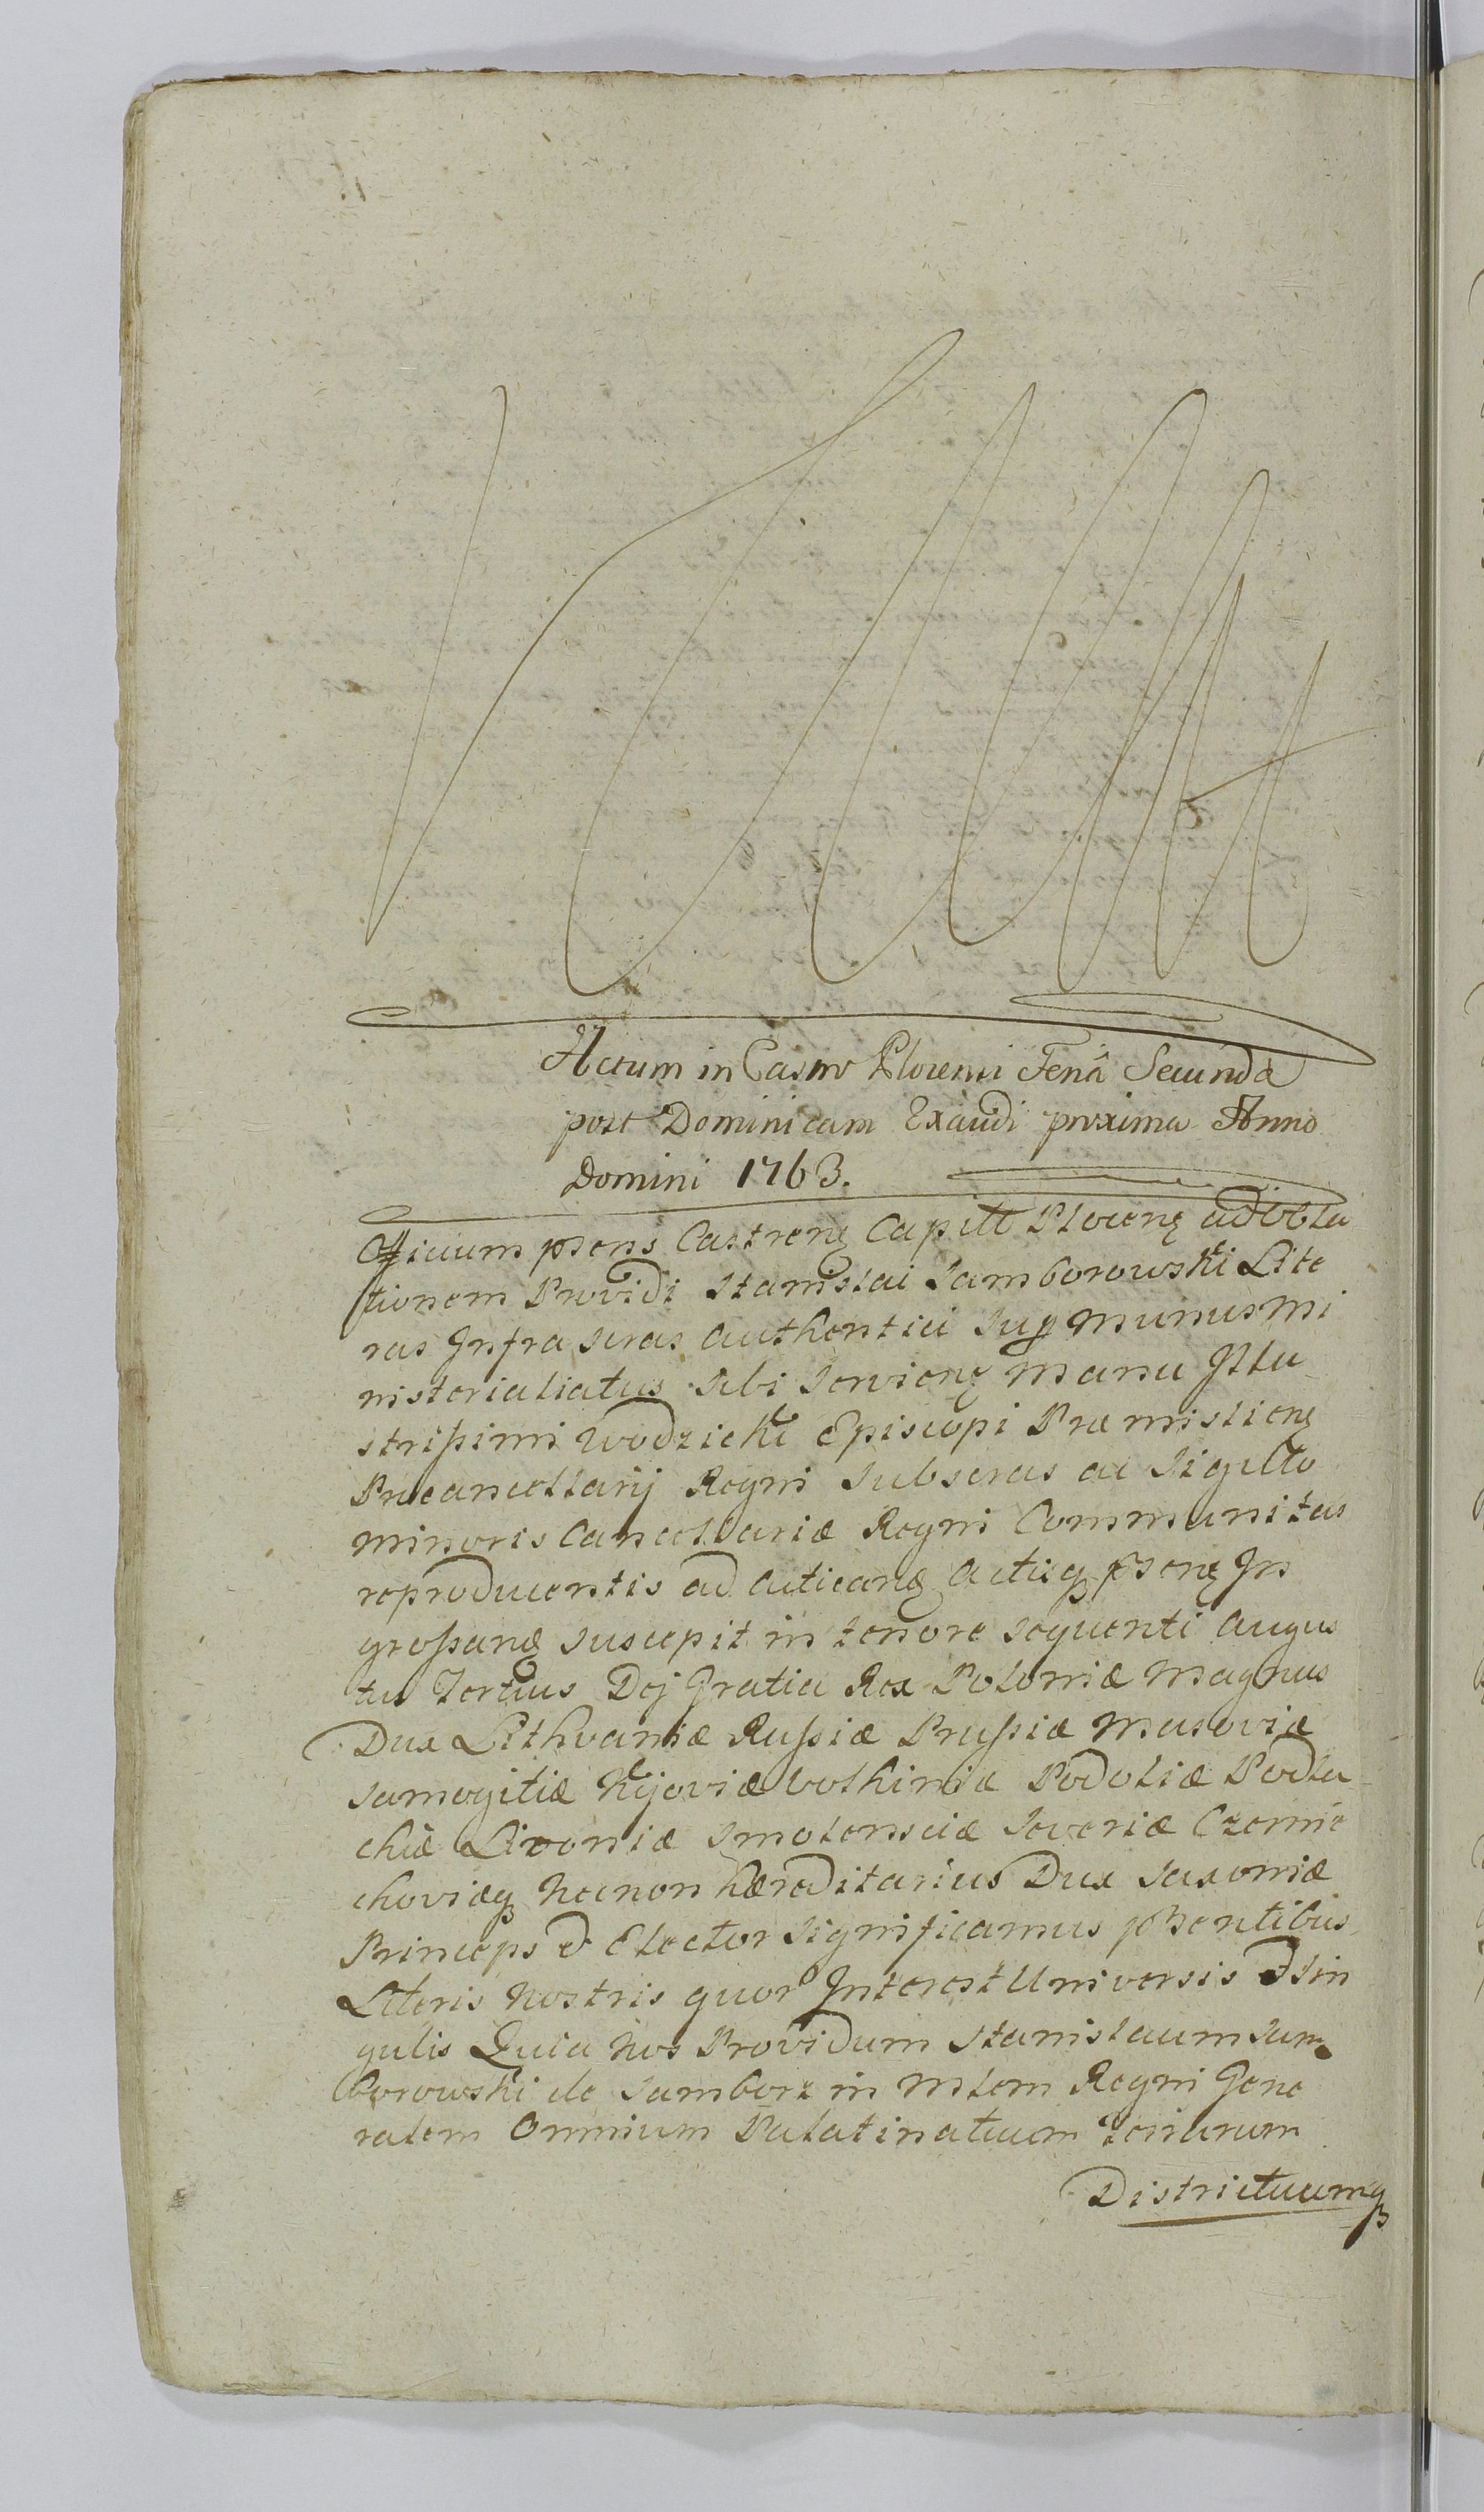 Actum in Castro Plocensi Feriâ Secunda
post Dominicam Exaudi proxima Anno
Domini 1763.
Officium pñsens Castrenς Capitł Plocenς ad obla
tionem Providi Stanislai Samborowski Lite
ras Infra scras authentici sup munus mi
nisterialiatus sibi servienς manu Illu
strißimi Wodzicki Episcopi Præmislienς
Procancellarij Regni subscras ac sigillo
minoris Cancellariæ Regni Communitas
reproducentis ad acticanς actisqꝫ pñsenς In
großanς suscepit in tenore sequenti Augus
tus Tertius Dej Gratia Rex Poloniæ Magnus
Dux Lithvaniæ Rußiæ Prußiæ Masoviæ
Samogitiæ Kijoviæ Volhiniæ Podoliæ Podla
chiæ Livoniæ Smolensciæ Severiæ Czernie
choviæqꝫ Necnon hæreditarius Dux Saxoniæ
Princeps & Elector Significamus pñsentibus
Literis Nostris quor Interest Universis & sin
gulis Quia Nos Providum Stanislaum Sam
borowski de Samborz in mlem Regni Gene
ralem Omnium Palatinatuum Terrarum
Districtuumqꝫ